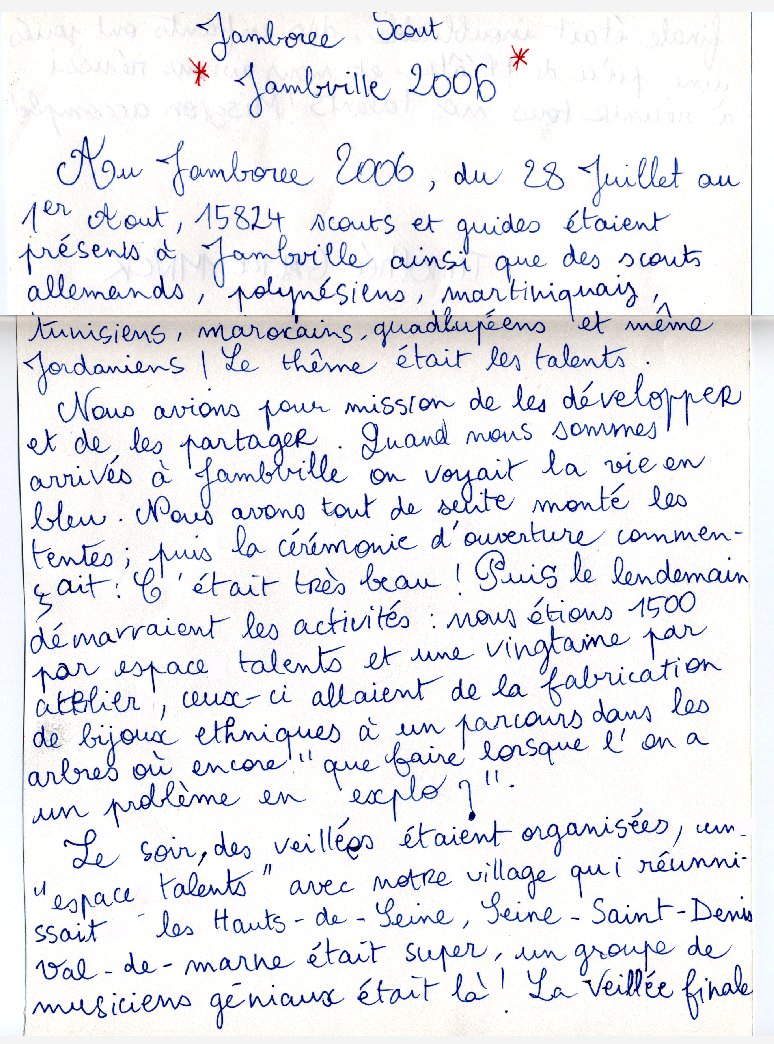 Jamboree Scout
* Jambville 2006 *
Au Jamboree 2006, du 28 Juillet au
1er Aout, 15824 scouts et guides étaient
présents à Jambville ainsi que des scouts
allemands, polynésiens, martiniquais,
tunisiens, marocains, guadlupéens et même
Jordaniens ! Le thême était les talents.
Nous avions pour mission de les développer
et de les partager. Quand nous sommes
arrivés à Jambville on voyait la vie en
bleu. Nous avons tout de suite monté les
tentes ; puis la cérémonie d'ouverture commen-
çait : C'était très beau ! Puis le lendemain
démarraient les activités : nous étions 1500
par espace talents et une vingtaine par
atelier, ceux-ci allaient de la fabrication
de bijoux ethniques à un parcours dans les
arbres où encore "que faire lorsque l'on a
un problème en explo ?".
Le soir, des veillées étaient organisées, un
"espace talents" avec notre village qui réunni-
ssait les Hauts-de-Seine, Seine-Saint-Denis
Val-de-marne était super, un groupe de
musiciens géniaux était là ! La veillée finale